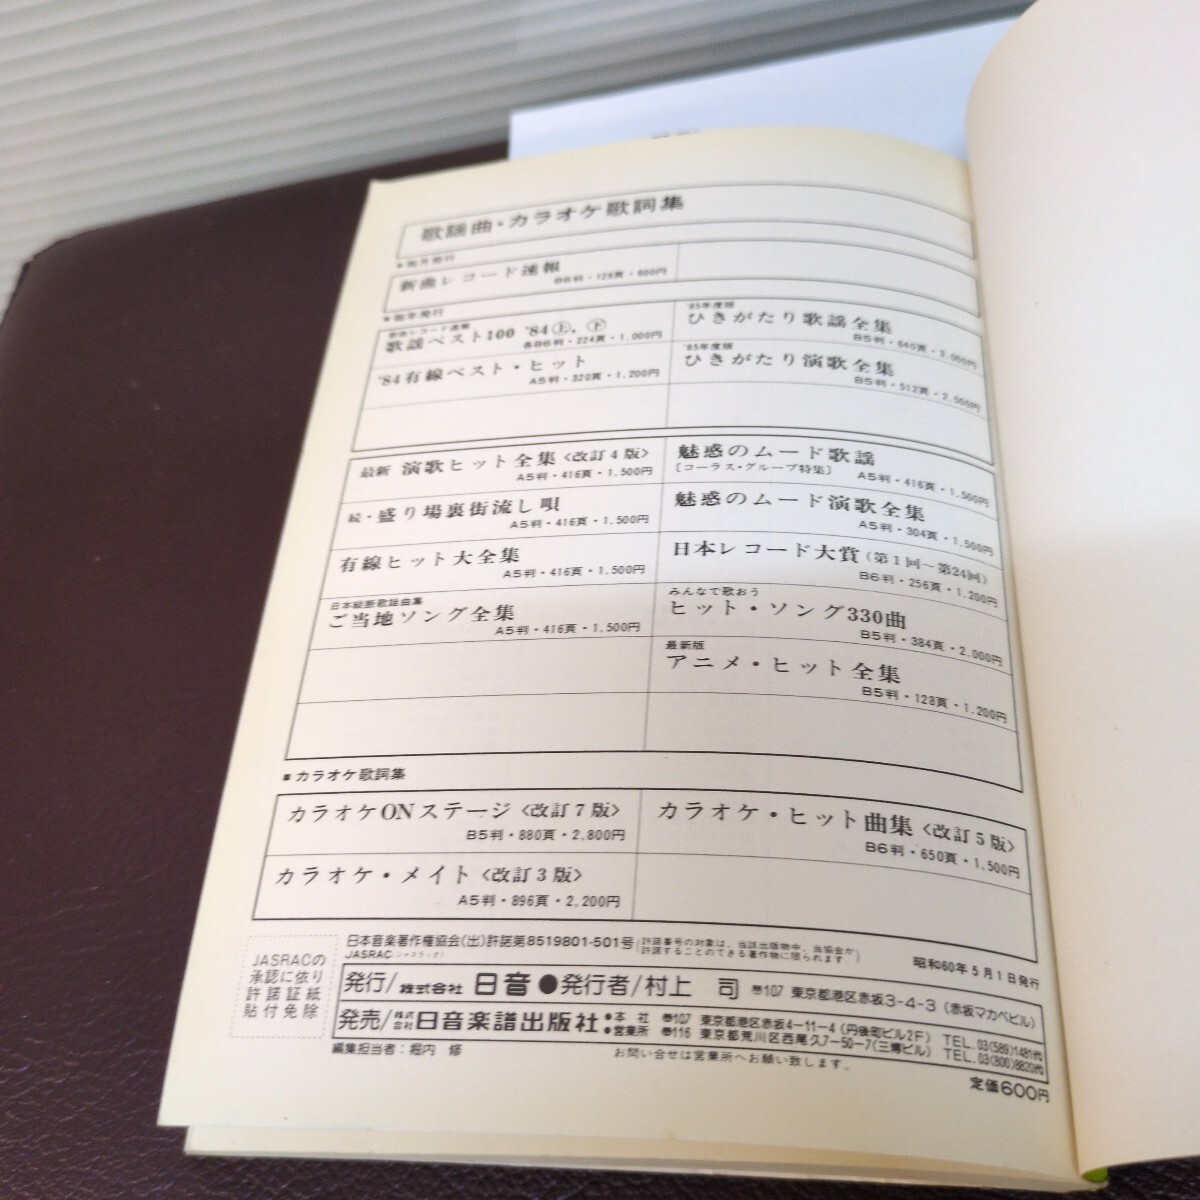 歌謡曲・カラオケ歌詞集
★毎月発行
新曲レコード速報
B6判・128頁・600円
★毎年発行
新曲レコード速報
歌謡ベスト100 '84㊤，㊦
各B6判・224頁・1,000円
'84有線ベスト・ヒット
A5判・320頁・1,200円
'85年度版
ひきがたり歌謡全集
B5判・640頁・3,000円
'85年度版
ひきがたり演歌全集
B5判・512頁・2,500円
最新 演歌ヒット全集〈改訂4版〉
A5判・416頁・1,500円
続・盛り場裏街流し唄
A5判・416頁・1,500円
有線ヒット大全集
A5判・416頁・1,500円
日本縦断歌謡曲集
ご当地ソング全集
A5判・416頁・1,500円
魅惑のムード歌謡
〔コーラス・グループ特集〕 A5判・416頁・1,500円
魅惑のムード演歌全集
A5判・304頁・1,500円
日本レコード大賞（第1回－第24回）
B6判・256頁・1,200円
みんなで歌おう
ヒット・ソング330曲
B5判・384頁・2,000円
最新版
アニメ・ヒット全集
B5判・128頁・1,200円
■カラオケ歌詞集
カラオケONステージ〈改訂7版〉
B5判・880頁・2,800円
カラオケ・メイト〈改訂3版〉
A5判・896頁・2,200円
カラオケ・ヒット曲集〈改訂5版〉
B6判・650頁・1,500円
JASRACの
承認に依り
許諾証紙
貼付免除
日本音楽著作権協会(出)許諾第8519801-501号
JASRAC(ジャスラック)
(許諾番号の対象は、当該出版物中、当協会が
許諾することのできる著作物に限られます)
昭和60年5月1日発行
発行/株式会社 日音●発行者/村上 司 〒107 東京都港区赤坂3-4-3（赤坂マカベビル）
発売/株式会社日音楽譜出版社
●本 社 〒107 東京都港区赤坂4-11-4（丹後町ビル2F） TEL.03(589)1481代
●営業所 〒116 東京都荒川区西尾久7-50-7(三博ビル) TEL.03(800)8820代
編集担当者：堀内 修
お問い合せは営業所へお願い致します。
定価600円